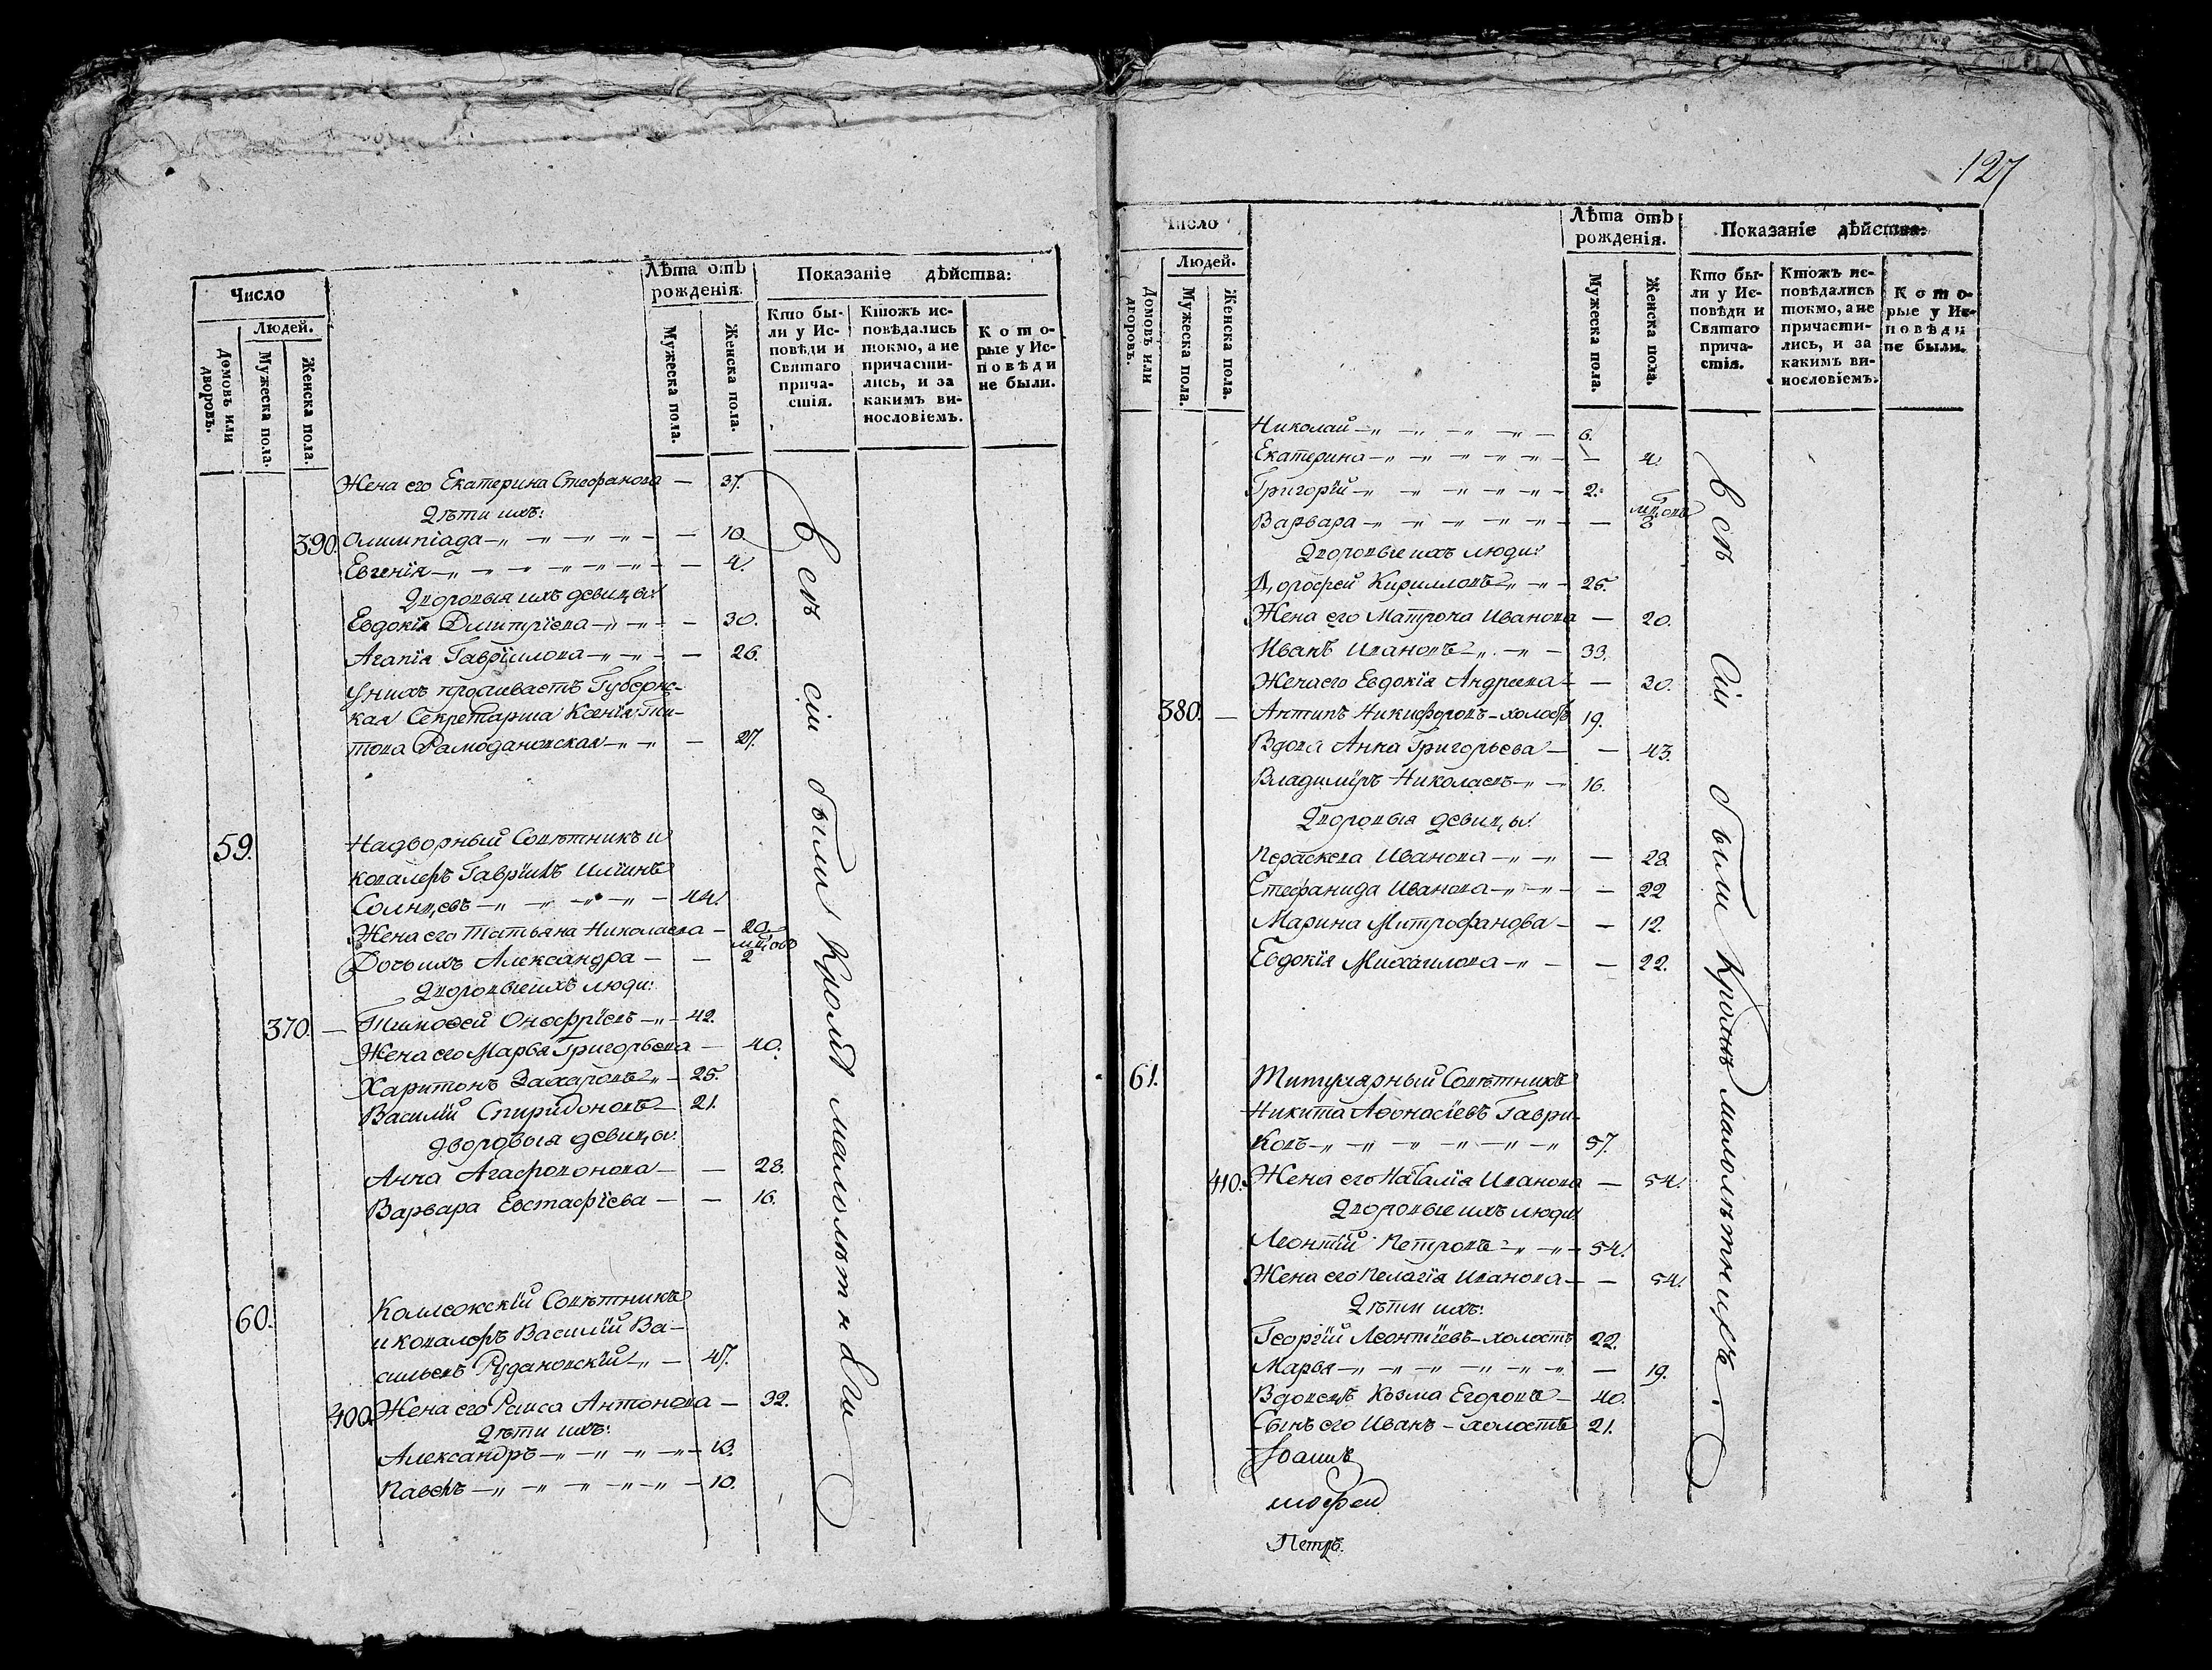 Число
Людей.
Домовъ или дворовъ.
Мужеска пола.
Женска пола.
Лѣта отъ рожденія.
Мужеска пола.
Женска пола.
Показаніе дѣйства:
Кто бы-
ли у Ис-
повѣди и
Святаго
прича-
стія.
Ктожъ ис-
повѣдались
токмо, а не
причасти-
лись, и за
какимъ ви-
нословіемъ.
Кото-
рые у Ис-
повѣди
не были.
Жена его Екатерина Стефанова — 37.
Дѣти ихъ:
390. Олимпіада — 10
Евгенія — 4.
Дворовыя ихъ девицы:
Евдокія Дмитріева — 30.
Агапія Гавріилова — 26.
У нихъ проживаетъ Губернс-
кая Секретарша Ксенія Ти-
това Рамодановская — 27.
59. Надворный Совѣтникъ и
кавалеръ Гавріилъ Иліинъ
Солнцевъ — 44.
Жена его Татьяна Николаева — 20
мцовъ
Дочь ихъ Александра — 2
Дворовые ихъ люди:
370. — Тимофей Онофріевъ — 42.
Жена его Марья Григорьева — 40.
Харитонъ Захаровъ — 25.
Василій Спиридоновъ — 21.
Дворовыя девицы:
Анна Агафоновова — 28.
Варвара Евстафіева — 16.
60. Коллежскій Совѣтникъ
и кавалеръ Василій Ва-
сильевъ Рудановскій — 47.
400. Жена его Раиса Антонова — 32.
Дѣти ихъ:
Александръ — 13.
Павелъ — 10.
Всѣ сіи были кромѣ малолѣтныхъ
127
Число
Людей.
Домовъ или дворовъ.
Мужеска пола.
Женска пола.
Лѣта отъ
рожденія.
Мужеска пола.
Женска пола.
Показаніе дѣйства:
Кто бы-
ли у Ис-
повѣди и
Святаго
прича-
стія.
Ктожъ ис-
повѣдались
токмо, а не
причасти-
лись, и за
какимъ ви-
нословіемъ.
Кото-
рые у Ис-
повѣди
не были.
Николай — 6.
Екатерина — 4.
Григорій — 2.
мцовъ
Варвара — 8
Дворовые ихъ люди:
Дорофей Кирилловъ — 25.
Жена его Матрона Иванова — 20.
Иванъ Ивановъ — 33.
Жена его Евдокія Андреева — 30.
380. — Антипъ Никифоровъ - холостъ 19.
Вдова Анна Григорьева — 43.
Владиміръ Николаевъ — 16.
Дворовыя девицы:
Параскева Иванова — 28.
Стефанида Иванова — 22
Марина Митрофанова — 12.
Евдокія Михаилова — 22.
61. Титулярный Совѣтникъ
Никита Афонасіевъ Гаври-
ковъ — 57.
410. Жена его Наталія Иванова — 54.
Дворовые ихъ люди:
Леонтій Петровъ — 54.
Жена его Пелагія Иванова — 54.
Дѣти ихъ:
Георгій Леонтіевъ - холостъ 22.
Марья — 19.
Вдовецъ Козма Егоровъ — 40.
Сынъ его Иванъ - холостъ 21.
Іоаннъ
Петръ.
Всѣ сіи были кромѣ малолѣтныхъ.